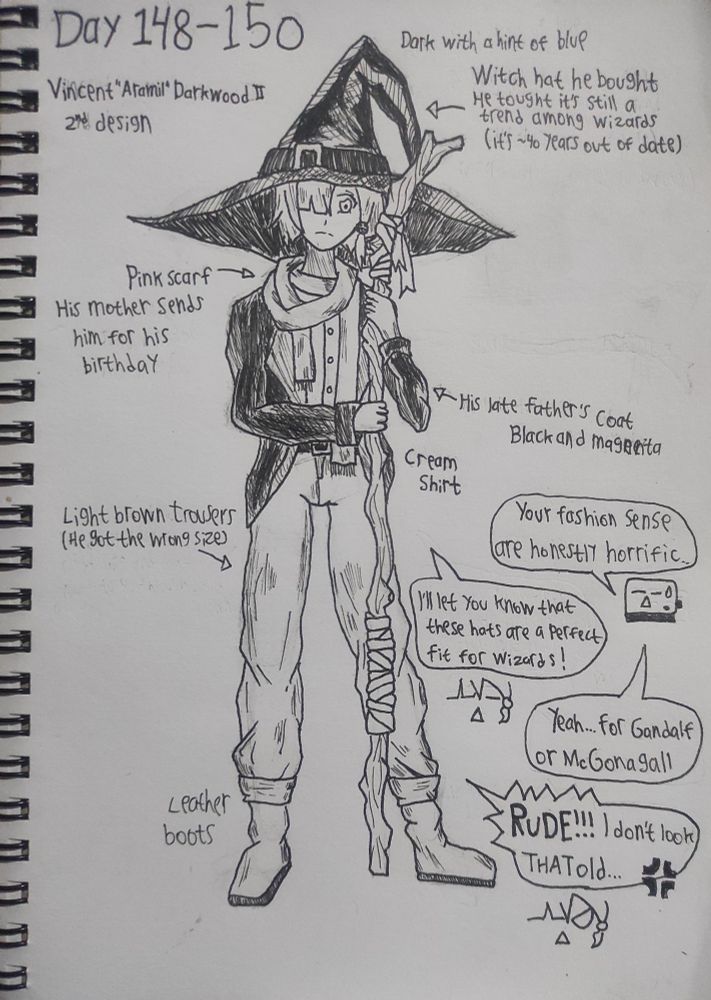 Day 148-150
Dark with a hint of blue
Vincent "Aramil" Darkwood II
2nd design
Witch hat he bought
He tought it's still a
trend among wizards
(it's ~40 years out of date)
Pink scarf
His mother sends
him for his
birthday
His late father's coat
Black and magneita
Cream
Shirt
Light brown trousers
(He got the wrong size)
Your fashion sense
are honestly horrific..
I'll let you know that
these hats are a perfect
fit for wizards!
Yeah... for Gandalf
or McGonagall
Leather
boots
RUDE!!! I don't look
THAT old...